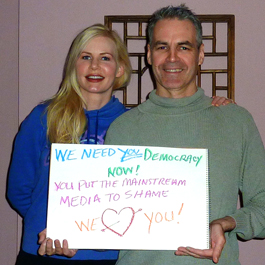 WE NEED YOU DEMOCRACY
NOW!
YOU PUT THE MAINSTREAM
MEDIA TO SHAME
WE YOU!